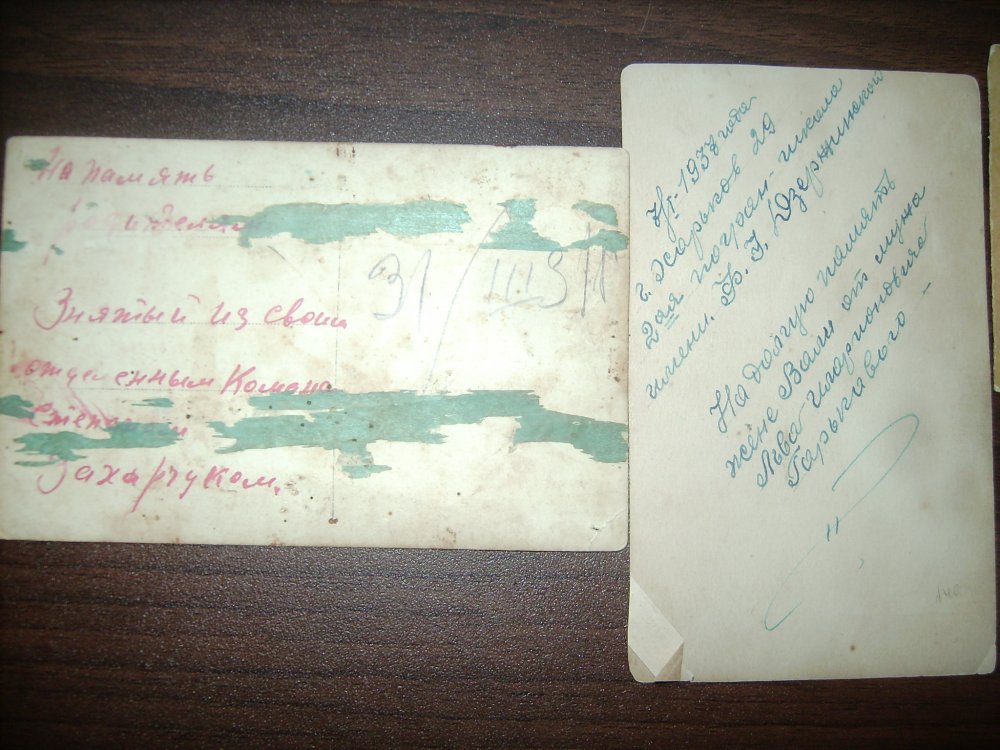 На память
Знятый из своим
отделенным Команд
Захарчуком.
31
7/VI-1937 года
г. Харьков 29
2ая погран-школа
имени. Ф. Э. Дзержинской
На долгую память
жене Вали от мужа
Льва Иларионовича
Гарькавого